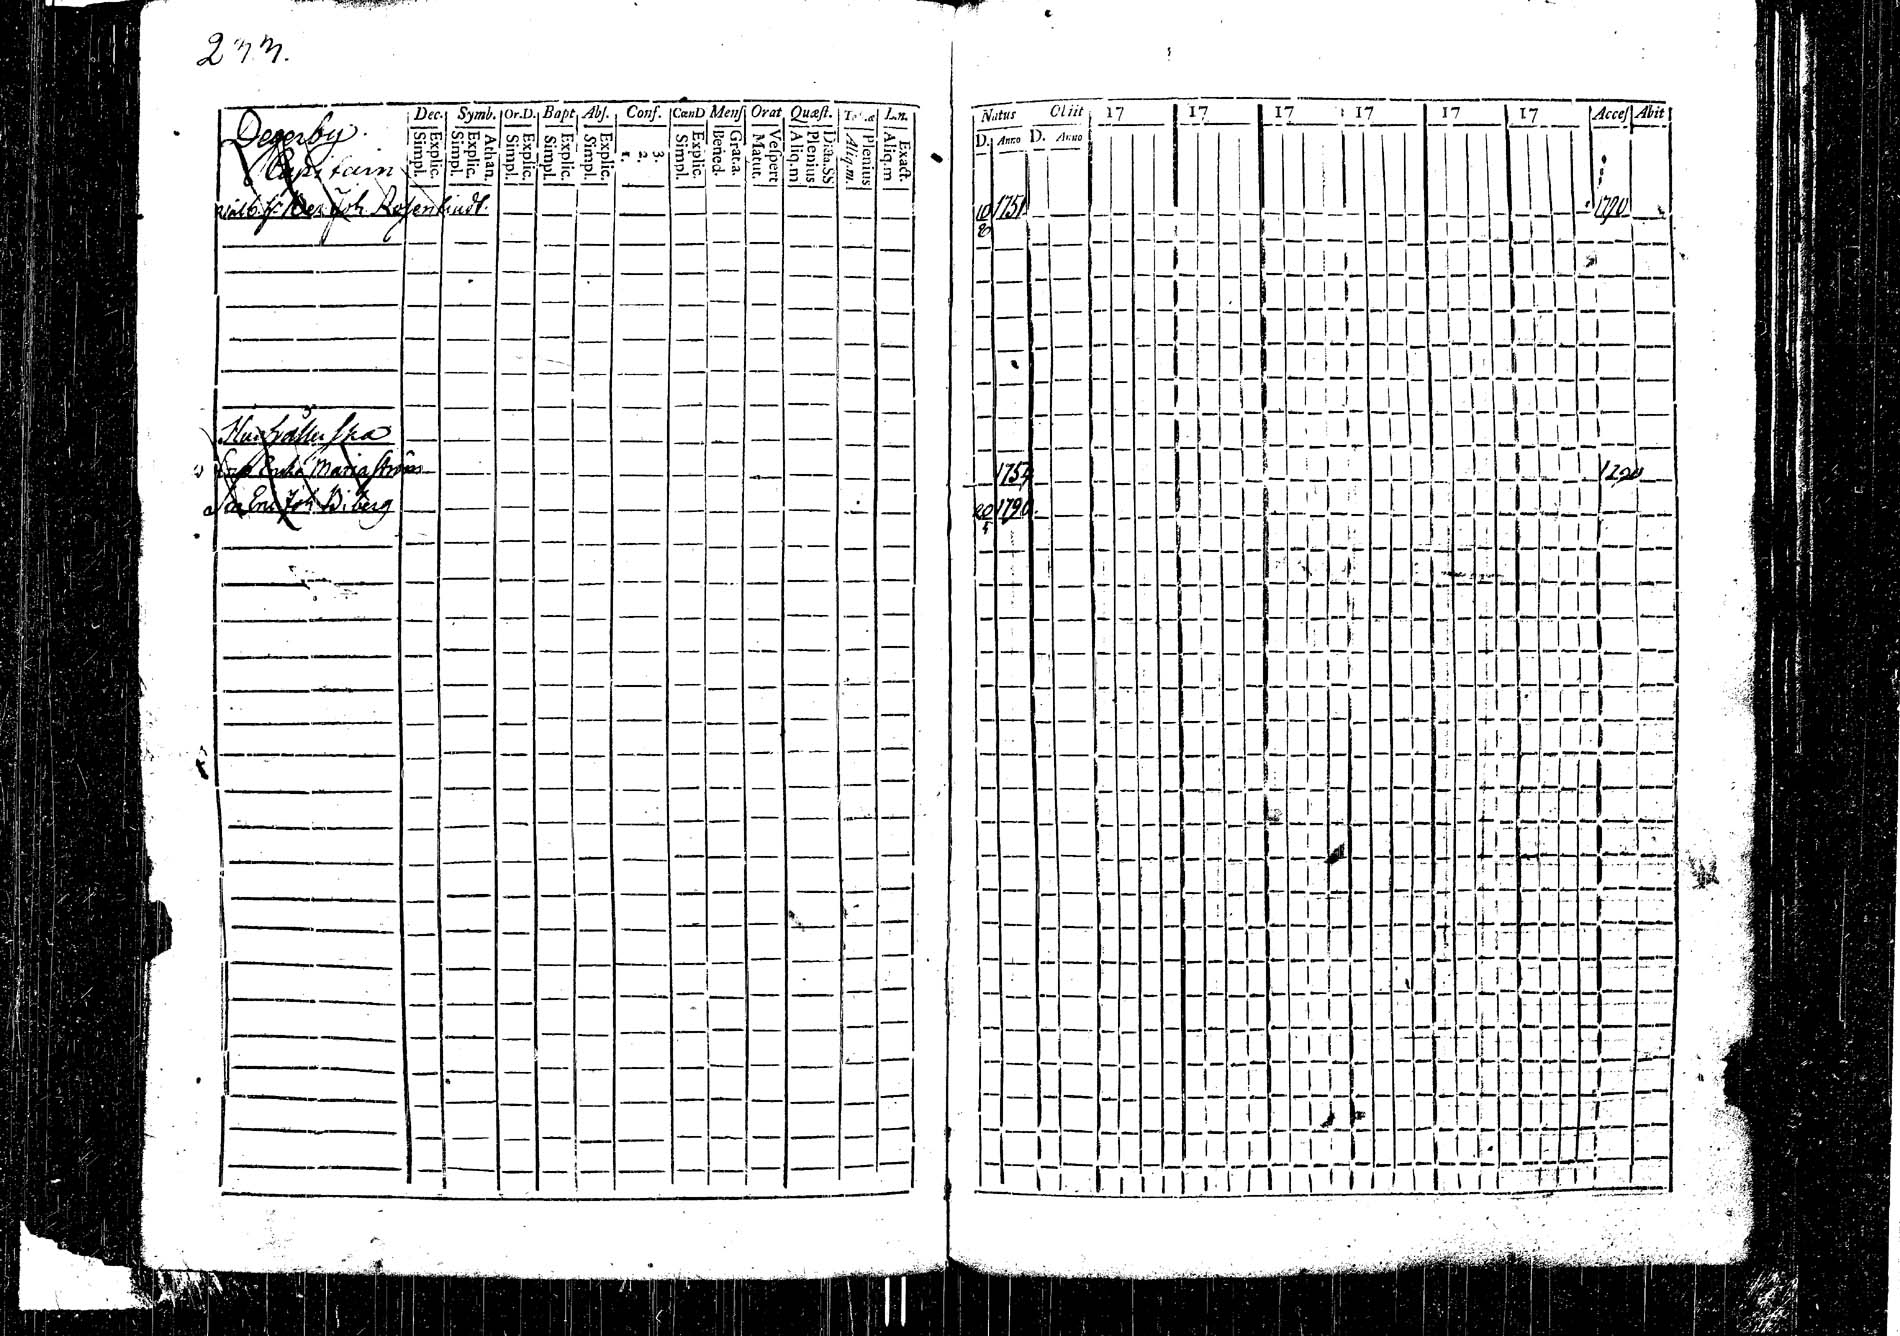 233.
Degerby.
Capitain
Joh. Rosenlindt.
Dec. Symb. Or.D. Bapt Abſ. Conf. CœnD Menſ Orat Quæſt. L.n.
Explic. Simpl. Athan. Explic. Simpl. Explic. Simpl. Explic. Simpl. Explic. Simpl. 3. 2. 1. Explic. Simpl. Grat.a. Bened. Veſpert Matut. Plenius Aliq.m Plenius Aliq.m. Exact. Aliq.m
Hushållerska
Maria Ström
Eric Joh. Biberg
Natus Obiit 17 17 17 17 17 17 Acceſ Abit
D. Anno D. Anno
10 1751 1790
8
1754 1790
20 1790.